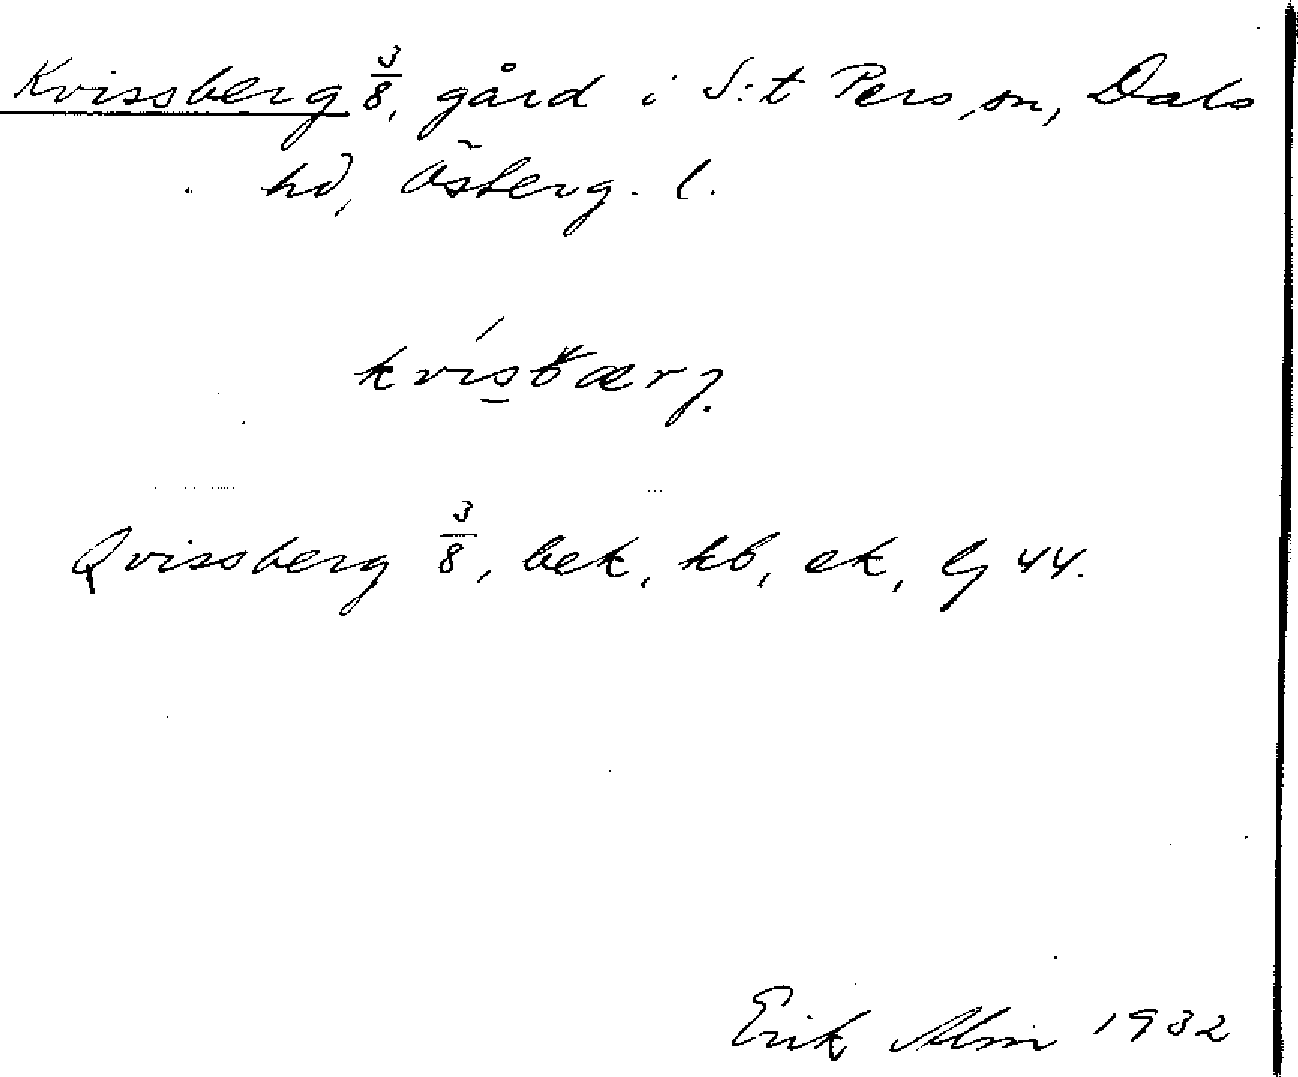 Kvissberg 3/8, gård i S:t Pers sn, Dals
hd, Österg. l.
kvísbærj.
Qvissberg 3/8, bek, kb, ek, Lj 44.
Erik Alm 1932